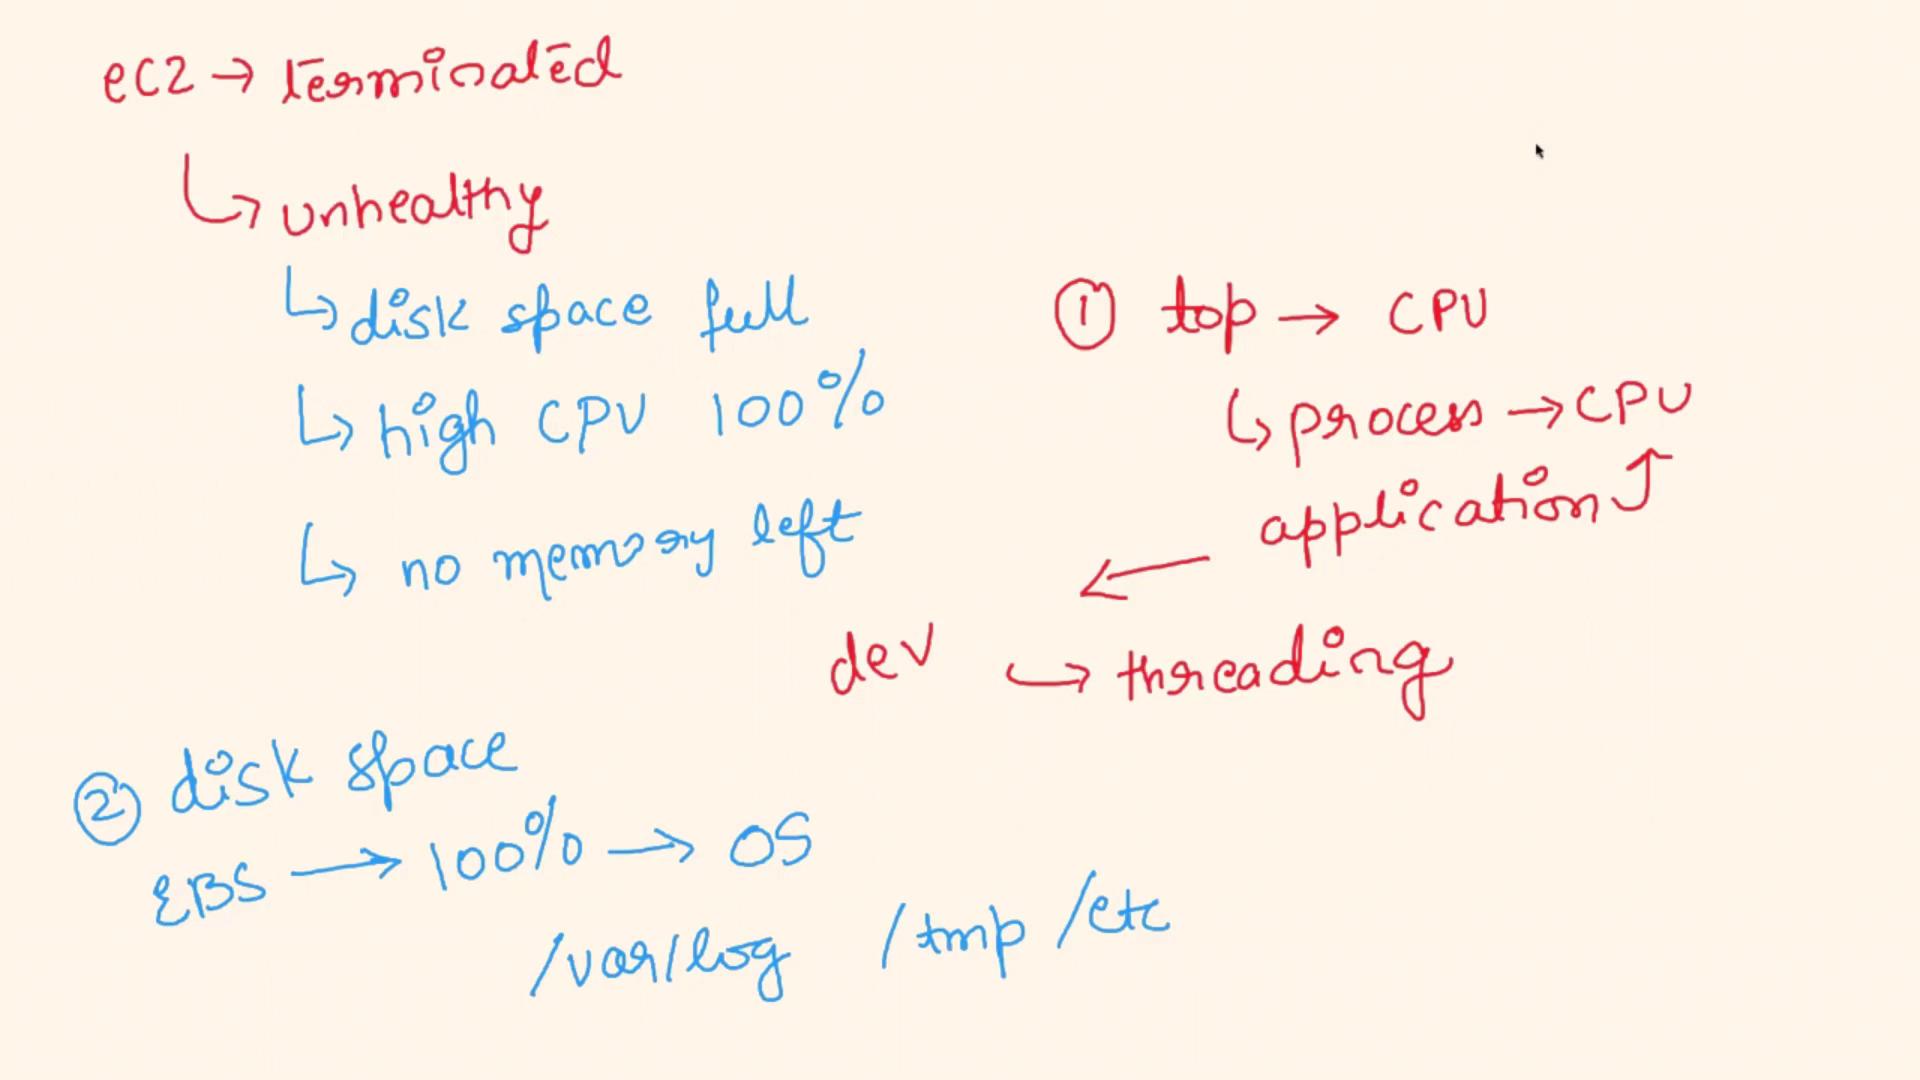 ec2 → terminated
↳ unhealthy
↳ disk space full
↳ high CPU 100%
↳ no memory left
① top → CPU
↳ process → CPU
application ↑
←
dev ↪ threading
② disk space
EBS → 100% → OS
/var/log /tmp /etc